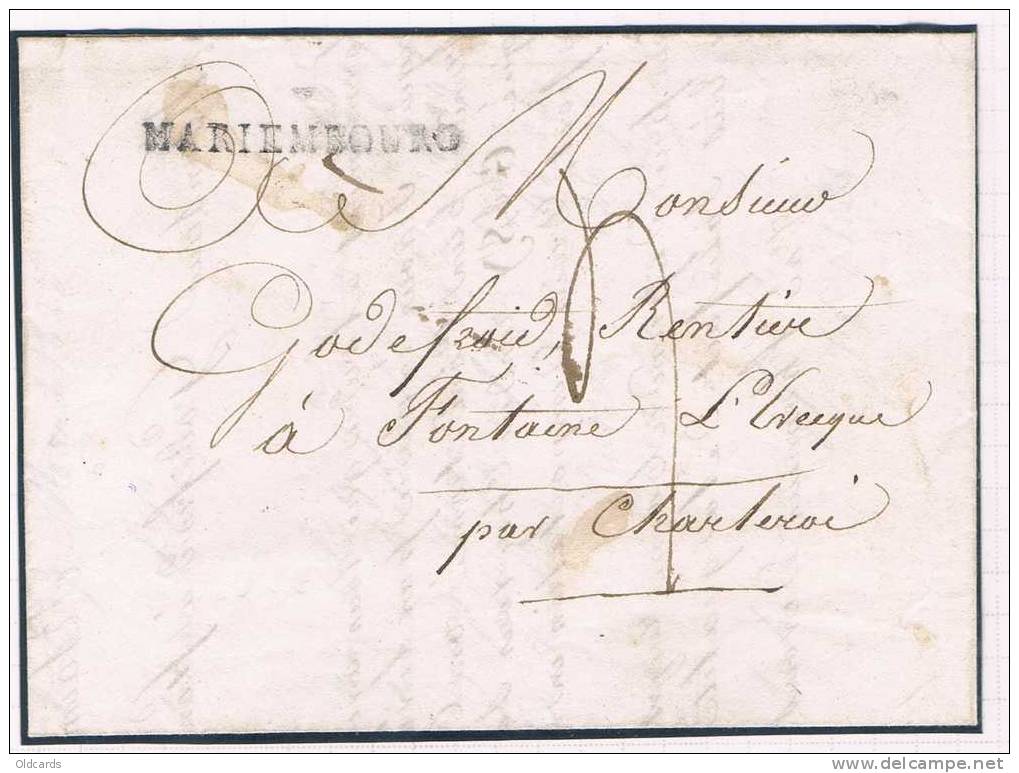 MARIEMBOURG
A Monsieur
Godefroid, Rentier
à Fontaine L'Evecque
par Charleroi
Oldcards
http://www.delcampe.net